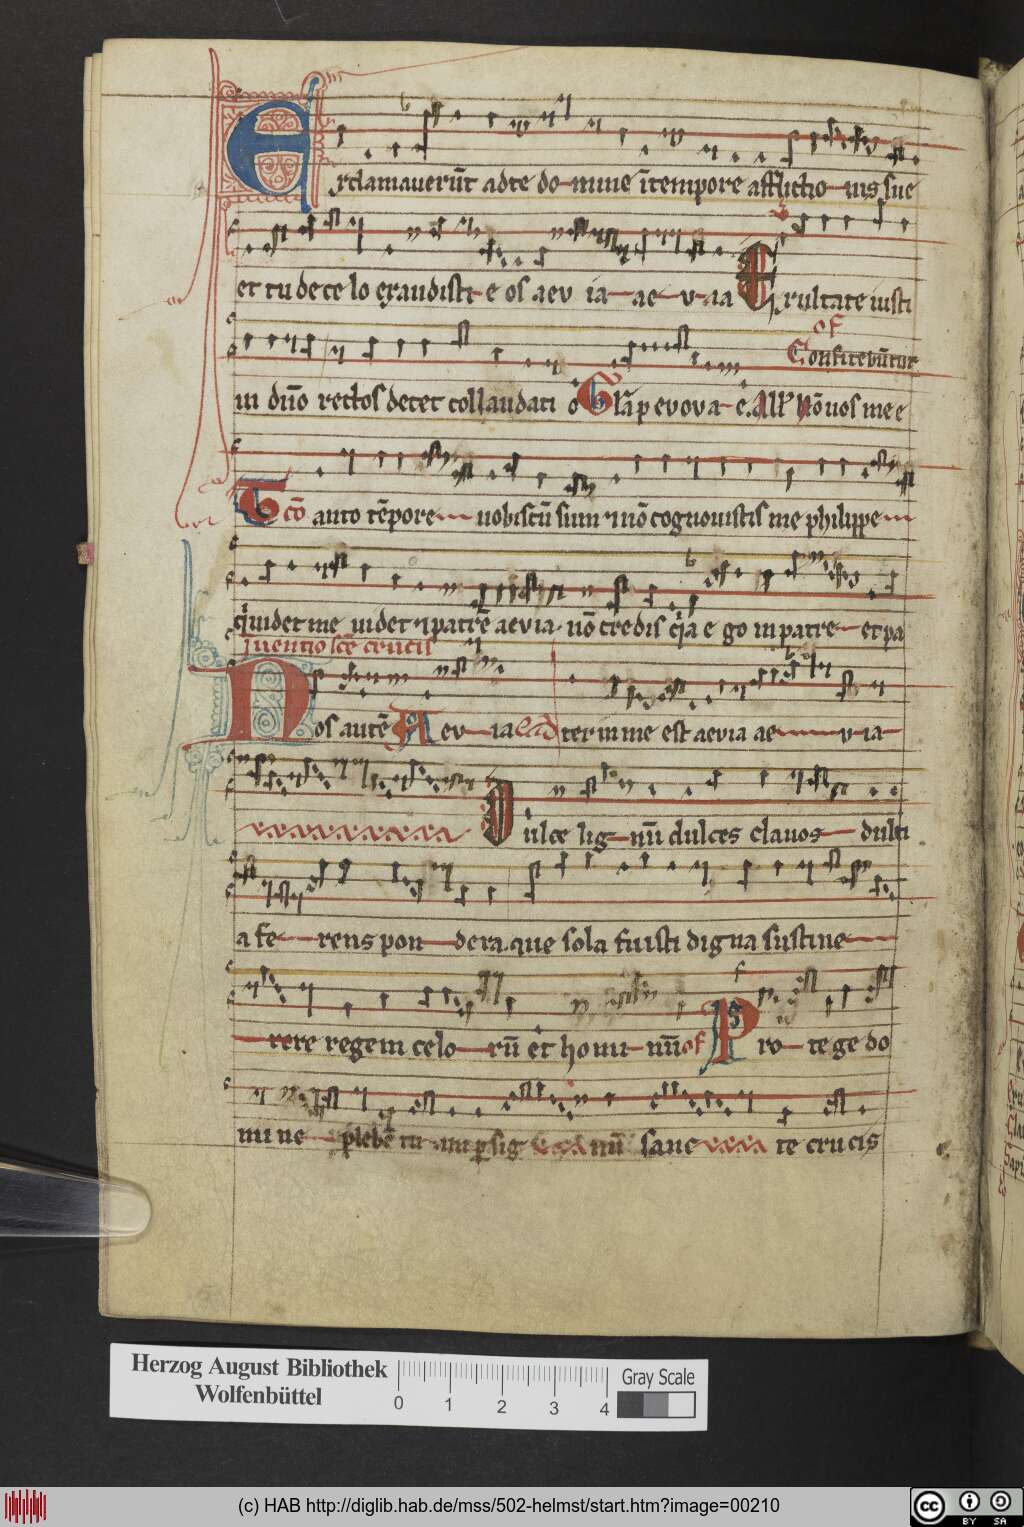 Exclamaverūt adte do mine ītempore afflictio nis sue
et tu de ce lo exaudisti e os aev ia ae v aa Exultate iusti
of
Confitebūtur
in dn̄o rectos decet collaudati o Gl̄a p evova e. All' Nō uos me e
Tco tāto tēpore uobiscū sum ⁊ nō cognouistis me philippe
qui uidet me uidet ⁊ patrē aevia nō credis qia e go in patre et pa
Inuentio sc̄e crucis
Nos autē Aev ia
ter in me est aevia ae v ia
Dulce lig nū dulces clavos dulci
a fe rens pon dera que sola fuisti digna sustine
rere regem celo rū et homi nū of Pro tege do
mine plebē tu am p sig nū sanc te crucis
Herzog August Bibliothek
Wolfenbüttel
0 1 2 3 4
Gray Scale
(c) HAB http://diglib.hab.de/mss/502-helmst/start.htm?image=00210
cc BY SA